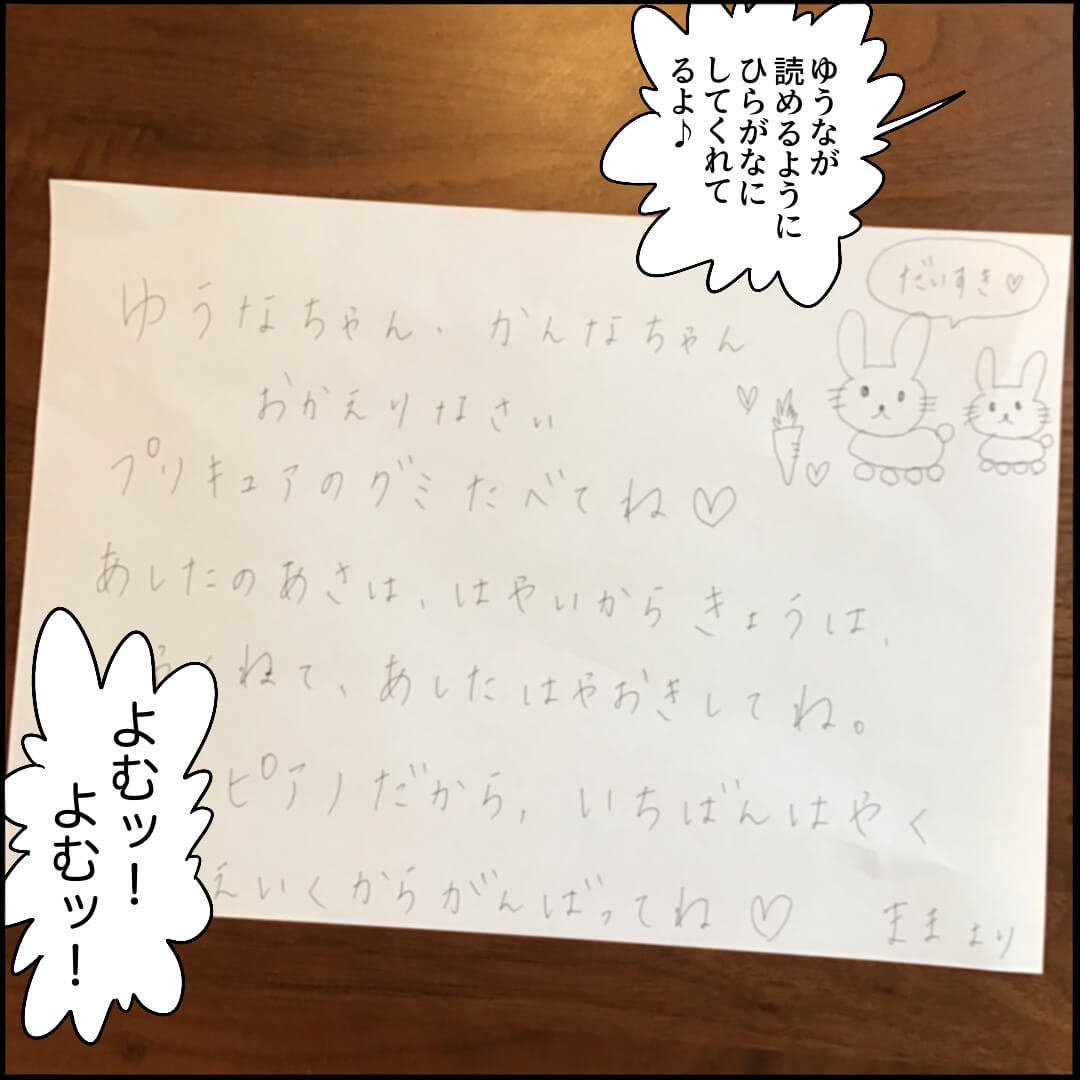 ゆうなが
読めるように
ひらがなに
してくれて
るよ♪
だいすき♡
ゆうなちゃん・かんなちゃん
おかえりなさい
プリキュアのグミたべてね♡
あしたのあさは、はやいからきょうは、
くねて、あしたはやおきしてね。
ピアノだから、いちばんはやく
えいくからがんばってね♡
ままより
よむッ!
よむッ!